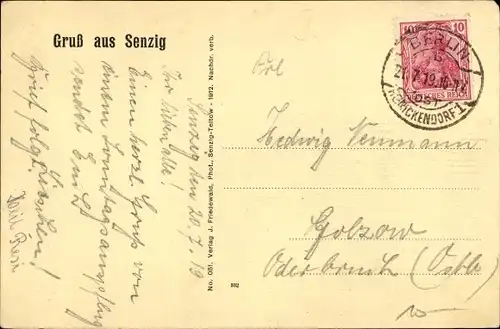 Gruß aus Senzig
Senzig den 20./7.19
Ihr lieben alle!
Einen herzl. Gruß von
einem Sonntagsausflug
sendet
Brief folgt.
No. 051. Verlag J. Friedewald, Phot., Senzig-Teltow - 1912. Nachdr. verb.
552
10 10
BERLIN
REINICKENDORF 1
(OST)
DEUTSCHES REICH
Hedwig Neumann
Golzow
Oderbruch (Ostb.)